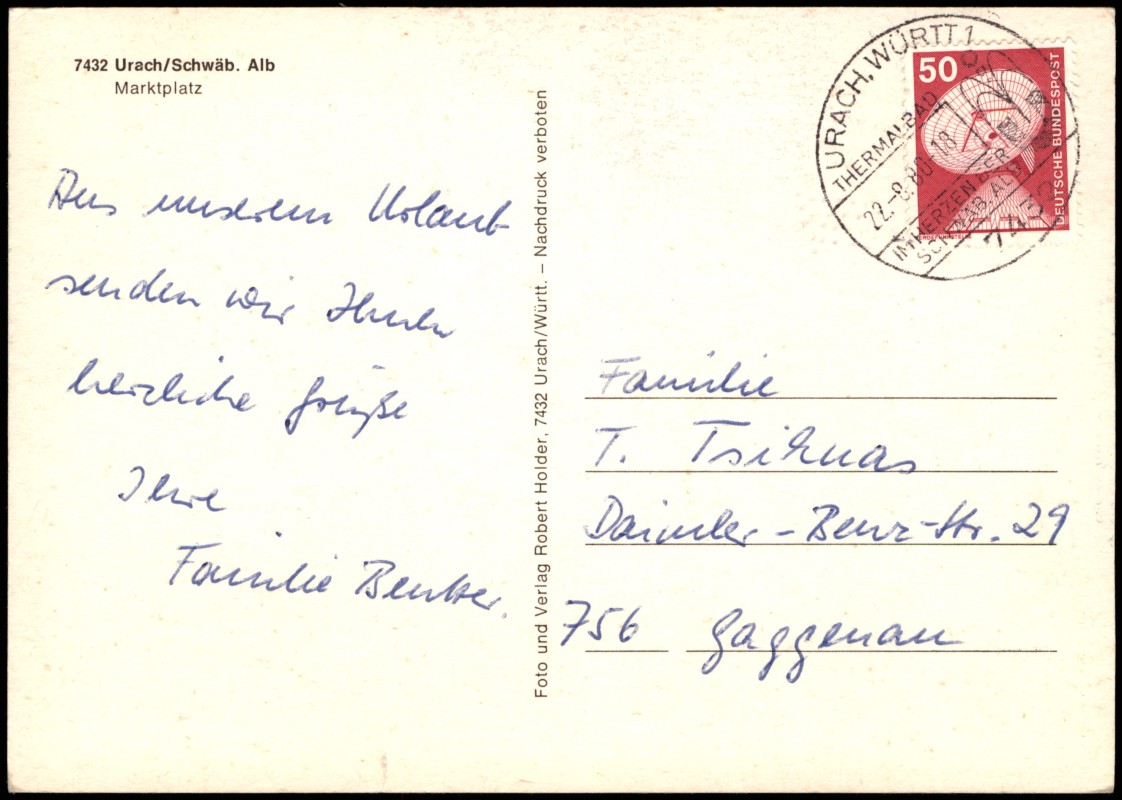 7432 Urach/Schwäb. Alb
Marktplatz
Aus unserem Urlaub
senden wir Ihnen
herzliche Grüße
Ihre
Familie
Foto und Verlag Robert Holder, 7432 Urach/Württ. – Nachdruck verboten
URACH, WÜRTT 1
THERMALBAD
22.-8.80.18
IM HERZEN DER
SCHWÄB. ALB
50
DEUTSCHE BUNDESPOST
Familie
T. Tsiknas
Daimler-Benz-Str. 29
756 Gaggenau